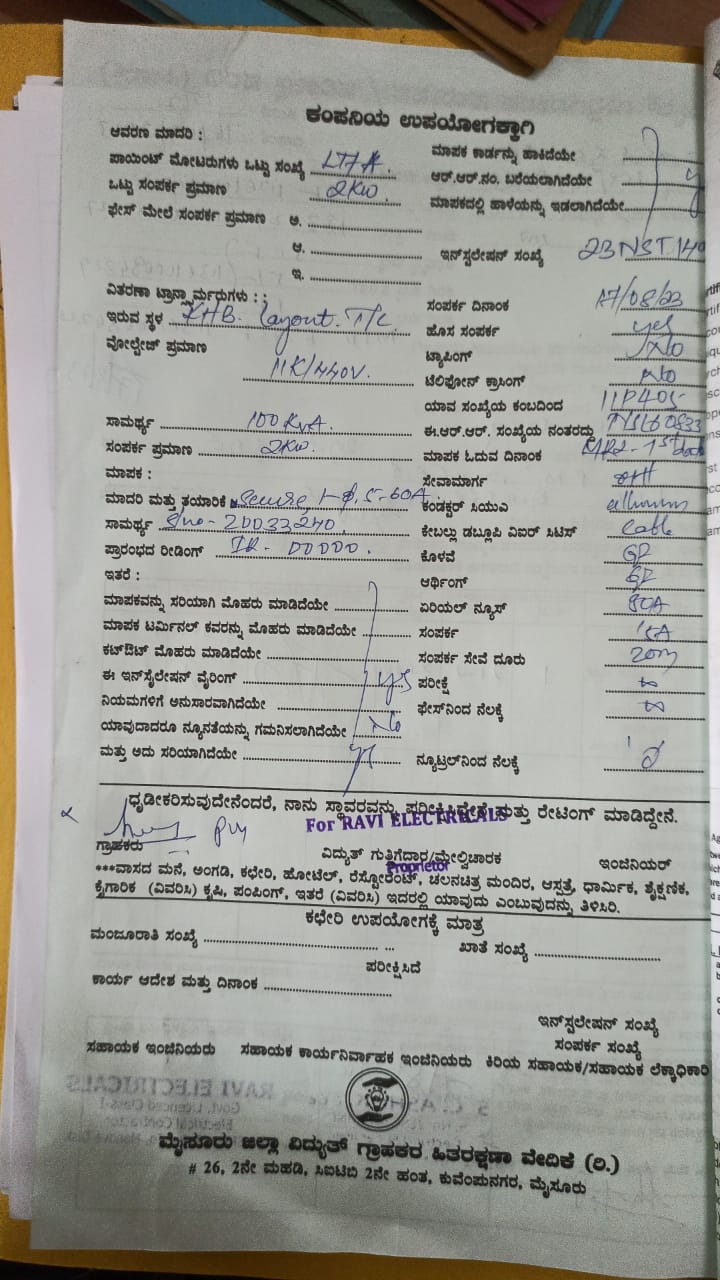 ಕಂಪನಿಯ ಉಪಯೋಗಕ್ಕಾಗಿ
ಆವರಣ ಮಾದರಿ :
ಪಾಯಿಂಟ್ ಮೋಟರುಗಳು ಒಟ್ಟು ಸಂಖ್ಯೆ
ಮಾಪಕ ಕಾರ್ಡನ್ನು ಹಾಕಿದೆಯೇ
ಒಟ್ಟು ಸಂಪರ್ಕ ಪ್ರಮಾಣ 2KW
ಆರ್.ಆರ್.ನಂ. ಬರೆಯಲಾಗಿದೆಯೇ
ಫೇಸ್ ಮೇಲೆ ಸಂಪರ್ಕ ಪ್ರಮಾಣ ಅ.
ಮಾಪಕದಲ್ಲಿ ಹಾಳೆಯನ್ನು ಇಡಲಾಗಿದೆಯೇ
ಆ.
ಇನ್‌ಸ್ಟಲೇಷನ್ ಸಂಖ್ಯೆ 23NST140
ಇ.
ವಿತರಣಾ ಟ್ರಾನ್ಸ್ಫಾರ್ಮರುಗಳು : :
ಸಂಪರ್ಕ ದಿನಾಂಕ 17/08/23
ಇರುವ ಸ್ಥಳ KHB. Layout. T/C.
ಹೊಸ ಸಂಪರ್ಕ yes
ವೋಲ್ಟೇಜ್ ಪ್ರಮಾಣ 11K/440V.
ಟ್ಯಾಪಿಂಗ್ No
ಟೆಲಿಫೋನ್ ಕ್ರಾಸಿಂಗ್ No
ಯಾವ ಸಂಖ್ಯೆಯ ಕಂಬದಿಂದ
ಸಾಮರ್ಥ್ಯ 100 KVA.
ಈ.ಆರ್.ಆರ್. ಸಂಖ್ಯೆಯ ನಂತರದ್ದು
ಸಂಪರ್ಕ ಪ್ರಮಾಣ 2KW.
ಮಾಪಕ ಓದುವ ದಿನಾಂಕ
ಮಾಪಕ :
ಸೇವಾಮಾರ್ಗ OH
ಮಾದರಿ ಮತ್ತು ತಯಾರಿಕೆ Secure, 1-φ, 5-60A
ಕಂಡಕ್ಟರ್ ಸಿಯುವಿ
ಸಾಮರ್ಥ್ಯ S/no- 20033240.
ಕೇಬಲ್ಲು ಡಬ್ಲೂಪಿ ವಿಐರ್ ಸಿಟಿಸ್ Cable
ಪ್ರಾರಂಭದ ರೀಡಿಂಗ್ IR- 00000.
ಕೊಳವೆ GI
ಇತರೆ :
ಆರ್ಥಿಂಗ್ GI
ಮಾಪಕವನ್ನು ಸರಿಯಾಗಿ ಮೊಹರು ಮಾಡಿದೆಯೇ
ಏರಿಯಲ್ ಫ್ಯೂಸ್
ಮಾಪಕ ಟರ್ಮಿನಲ್ ಕವರನ್ನು ಮೊಹರು ಮಾಡಿದೆಯೇ
ಸಂಪರ್ಕ 15A
ಕಟ್‌ಔಟ್ ಮೊಹರು ಮಾಡಿದೆಯೇ
ಸಂಪರ್ಕ ಸೇವೆ ದೂರು 20m
ಈ ಇನ್‌ಸ್ಟಲೇಷನ್ ವೈರಿಂಗ್ yes
ಪರೀಕ್ಷೆ ∞
ನಿಯಮಗಳಿಗೆ ಅನುಸಾರವಾಗಿದೆಯೇ
ಫೇಸ್‌ನಿಂದ ನೆಲಕ್ಕೆ ∞
ಯಾವುದಾದರೂ ನ್ಯೂನತೆಯನ್ನು ಗಮನಿಸಲಾಗಿದೆಯೇ No
ಮತ್ತು ಅದು ಸರಿಯಾಗಿದೆಯೇ
ನ್ಯೂಟ್ರಲ್‌ನಿಂದ ನೆಲಕ್ಕೆ
ಧೃಡೀಕರಿಸುವುದೇನೆಂದರೆ, ನಾನು ಸ್ಥಾವರವನ್ನು ಪರೀಕ್ಷಿಸಿದ್ದೇನೆ ಮತ್ತು ರೇಟಿಂಗ್ ಮಾಡಿದ್ದೇನೆ.
For RAVI ELECTRICALS
ಗ್ರಾಹಕರು ವಿದ್ಯುತ್ ಗುತ್ತಿಗೆದಾರ/ಮೇಲ್ವಿಚಾರಕ ಇಂಜಿನಿಯರ್
Proprietor
***ವಾಸದ ಮನೆ, ಅಂಗಡಿ, ಕಛೇರಿ, ಹೋಟೆಲ್, ರೆಸ್ಟೋರೆಂಟ್, ಚಲನಚಿತ್ರ ಮಂದಿರ, ಆಸ್ಪತ್ರೆ, ಧಾರ್ಮಿಕ, ಶೈಕ್ಷಣಿಕ,
ಕೈಗಾರಿಕ (ವಿವರಿಸಿ) ಕೃಷಿ, ಪಂಪಿಂಗ್, ಇತರೆ (ವಿವರಿಸಿ) ಇದರಲ್ಲಿ ಯಾವುದು ಎಂಬುವುದನ್ನು ತಿಳಿಸಿರಿ.
ಕಛೇರಿ ಉಪಯೋಗಕ್ಕೆ ಮಾತ್ರ
ಮಂಜೂರಾತಿ ಸಂಖ್ಯೆ
ಖಾತೆ ಸಂಖ್ಯೆ
ಪರೀಕ್ಷಿಸಿದೆ
ಕಾರ್ಯ ಆದೇಶ ಮತ್ತು ದಿನಾಂಕ
ಇನ್‌ಸ್ಟಲೇಷನ್ ಸಂಖ್ಯೆ
ಸಂಪರ್ಕ ಸಂಖ್ಯೆ
ಸಹಾಯಕ ಇಂಜಿನಿಯರು ಸಹಾಯಕ ಕಾರ್ಯನಿರ್ವಾಹಕ ಇಂಜಿನಿಯರು ಕಿರಿಯ ಸಹಾಯಕ/ಸಹಾಯಕ ಲೆಕ್ಕಾಧಿಕಾರಿ
ಮೈಸೂರು ಜಿಲ್ಲಾ ವಿದ್ಯುತ್ ಗ್ರಾಹಕರ ಹಿತರಕ್ಷಣಾ ವೇದಿಕೆ (ರಿ.)
# 26, 2ನೇ ಮಹಡಿ, ಸಿಐಟಿಬಿ 2ನೇ ಹಂತ, ಕುವೆಂಪುನಗರ, ಮೈಸೂರು